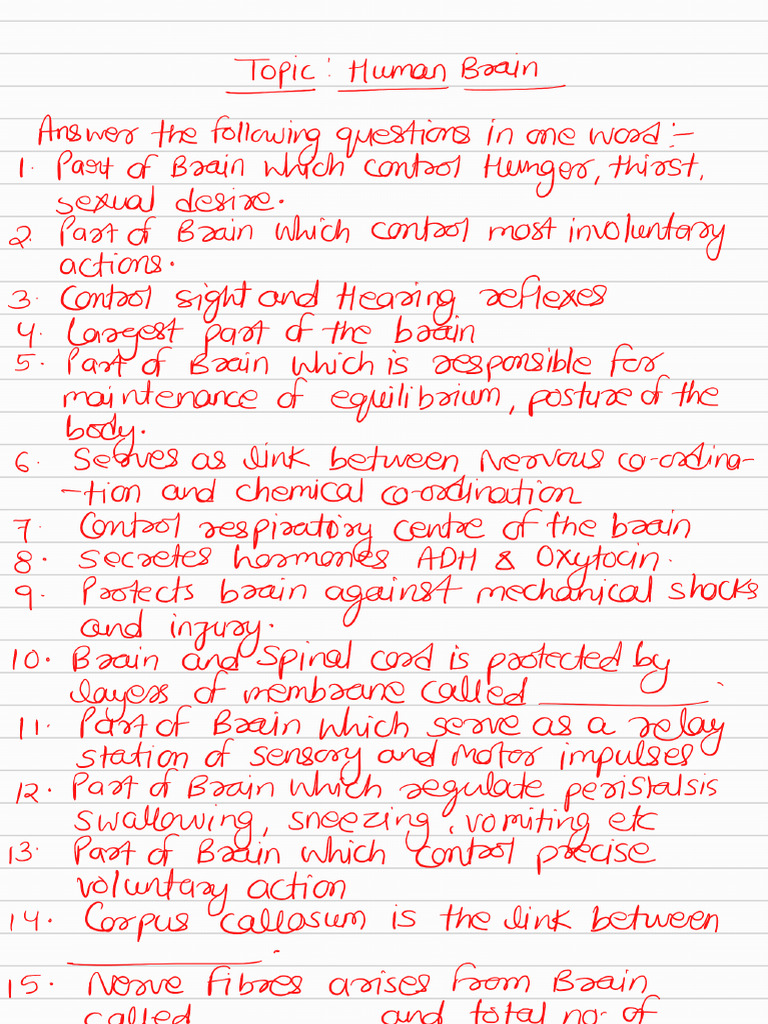 Topic: Human Brain
Answer the following questions in one word:-
1. Part of Brain which control Hunger, thirst,
sexual desire.
2. Part of Brain which control most involuntary
actions.
3. Control sight and Hearing reflexes
4. Largest part of the brain
5. Part of Brain which is responsible for
maintenance of equilibrium, posture of the
body.
6. Serves as link between Nervous co-ordina-
-tion and chemical co-ordination
7. Control respiratory centre of the brain
8. Secretes hormones ADH & Oxytocin.
9. Protects brain against mechanical shocks
and injury.
10. Brain and Spinal cord is protected by
layers of membrane called ___________.
11. Part of Brain which serve as a relay
station of sensory and Motor impulses
12. Part of Brain which regulate peristalsis
swallowing, sneezing, vomiting etc
13. Part of Brain which control precise
voluntary action
14. Corpus callosum is the link between
___________.
15. Nerve fibres arises from Brain
called ___________ and total no. of